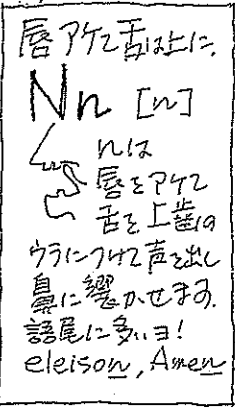 唇アケて舌は上に.
Nn [n]
nは
唇をアケて
舌を上歯の
ウラにつけて声を出し
鼻に響かせます.
語尾に多いヨ!
eleison, Amen